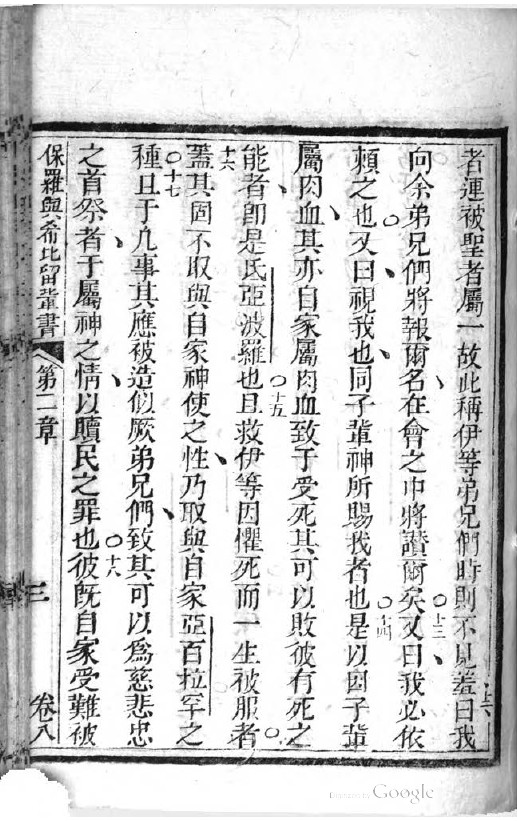 者連被聖者屬一故此稱伊等弟兄們時則不見羞曰我
向余弟兄們將報爾名在會之中將讚爾矣○十三又曰我必依
賴之也○又曰視我也同子輩神所賜我者也○十四是以因子輩
屬肉血其亦自家屬肉血致于受死其可以敗彼有死之
能者卽是氐亞波羅也○十五且救伊等因懼死而一生被服者○
十六蓋其固不取與自家神使之性乃取與自家亞百拉罕之
○十七種且于凡事其應被造似厥弟兄們致其可以爲慈悲忠
之首祭者于屬神之情以贖民之罪也○十八彼旣自家受難被
保羅與希比留輩書 第二章 三 卷八
Digitized by Google